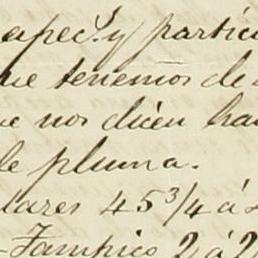 apec? y particu
ue tenemos de
e nos dicen ha
le pluma.
lares 45 3/4 á
Tampico 2 á 2